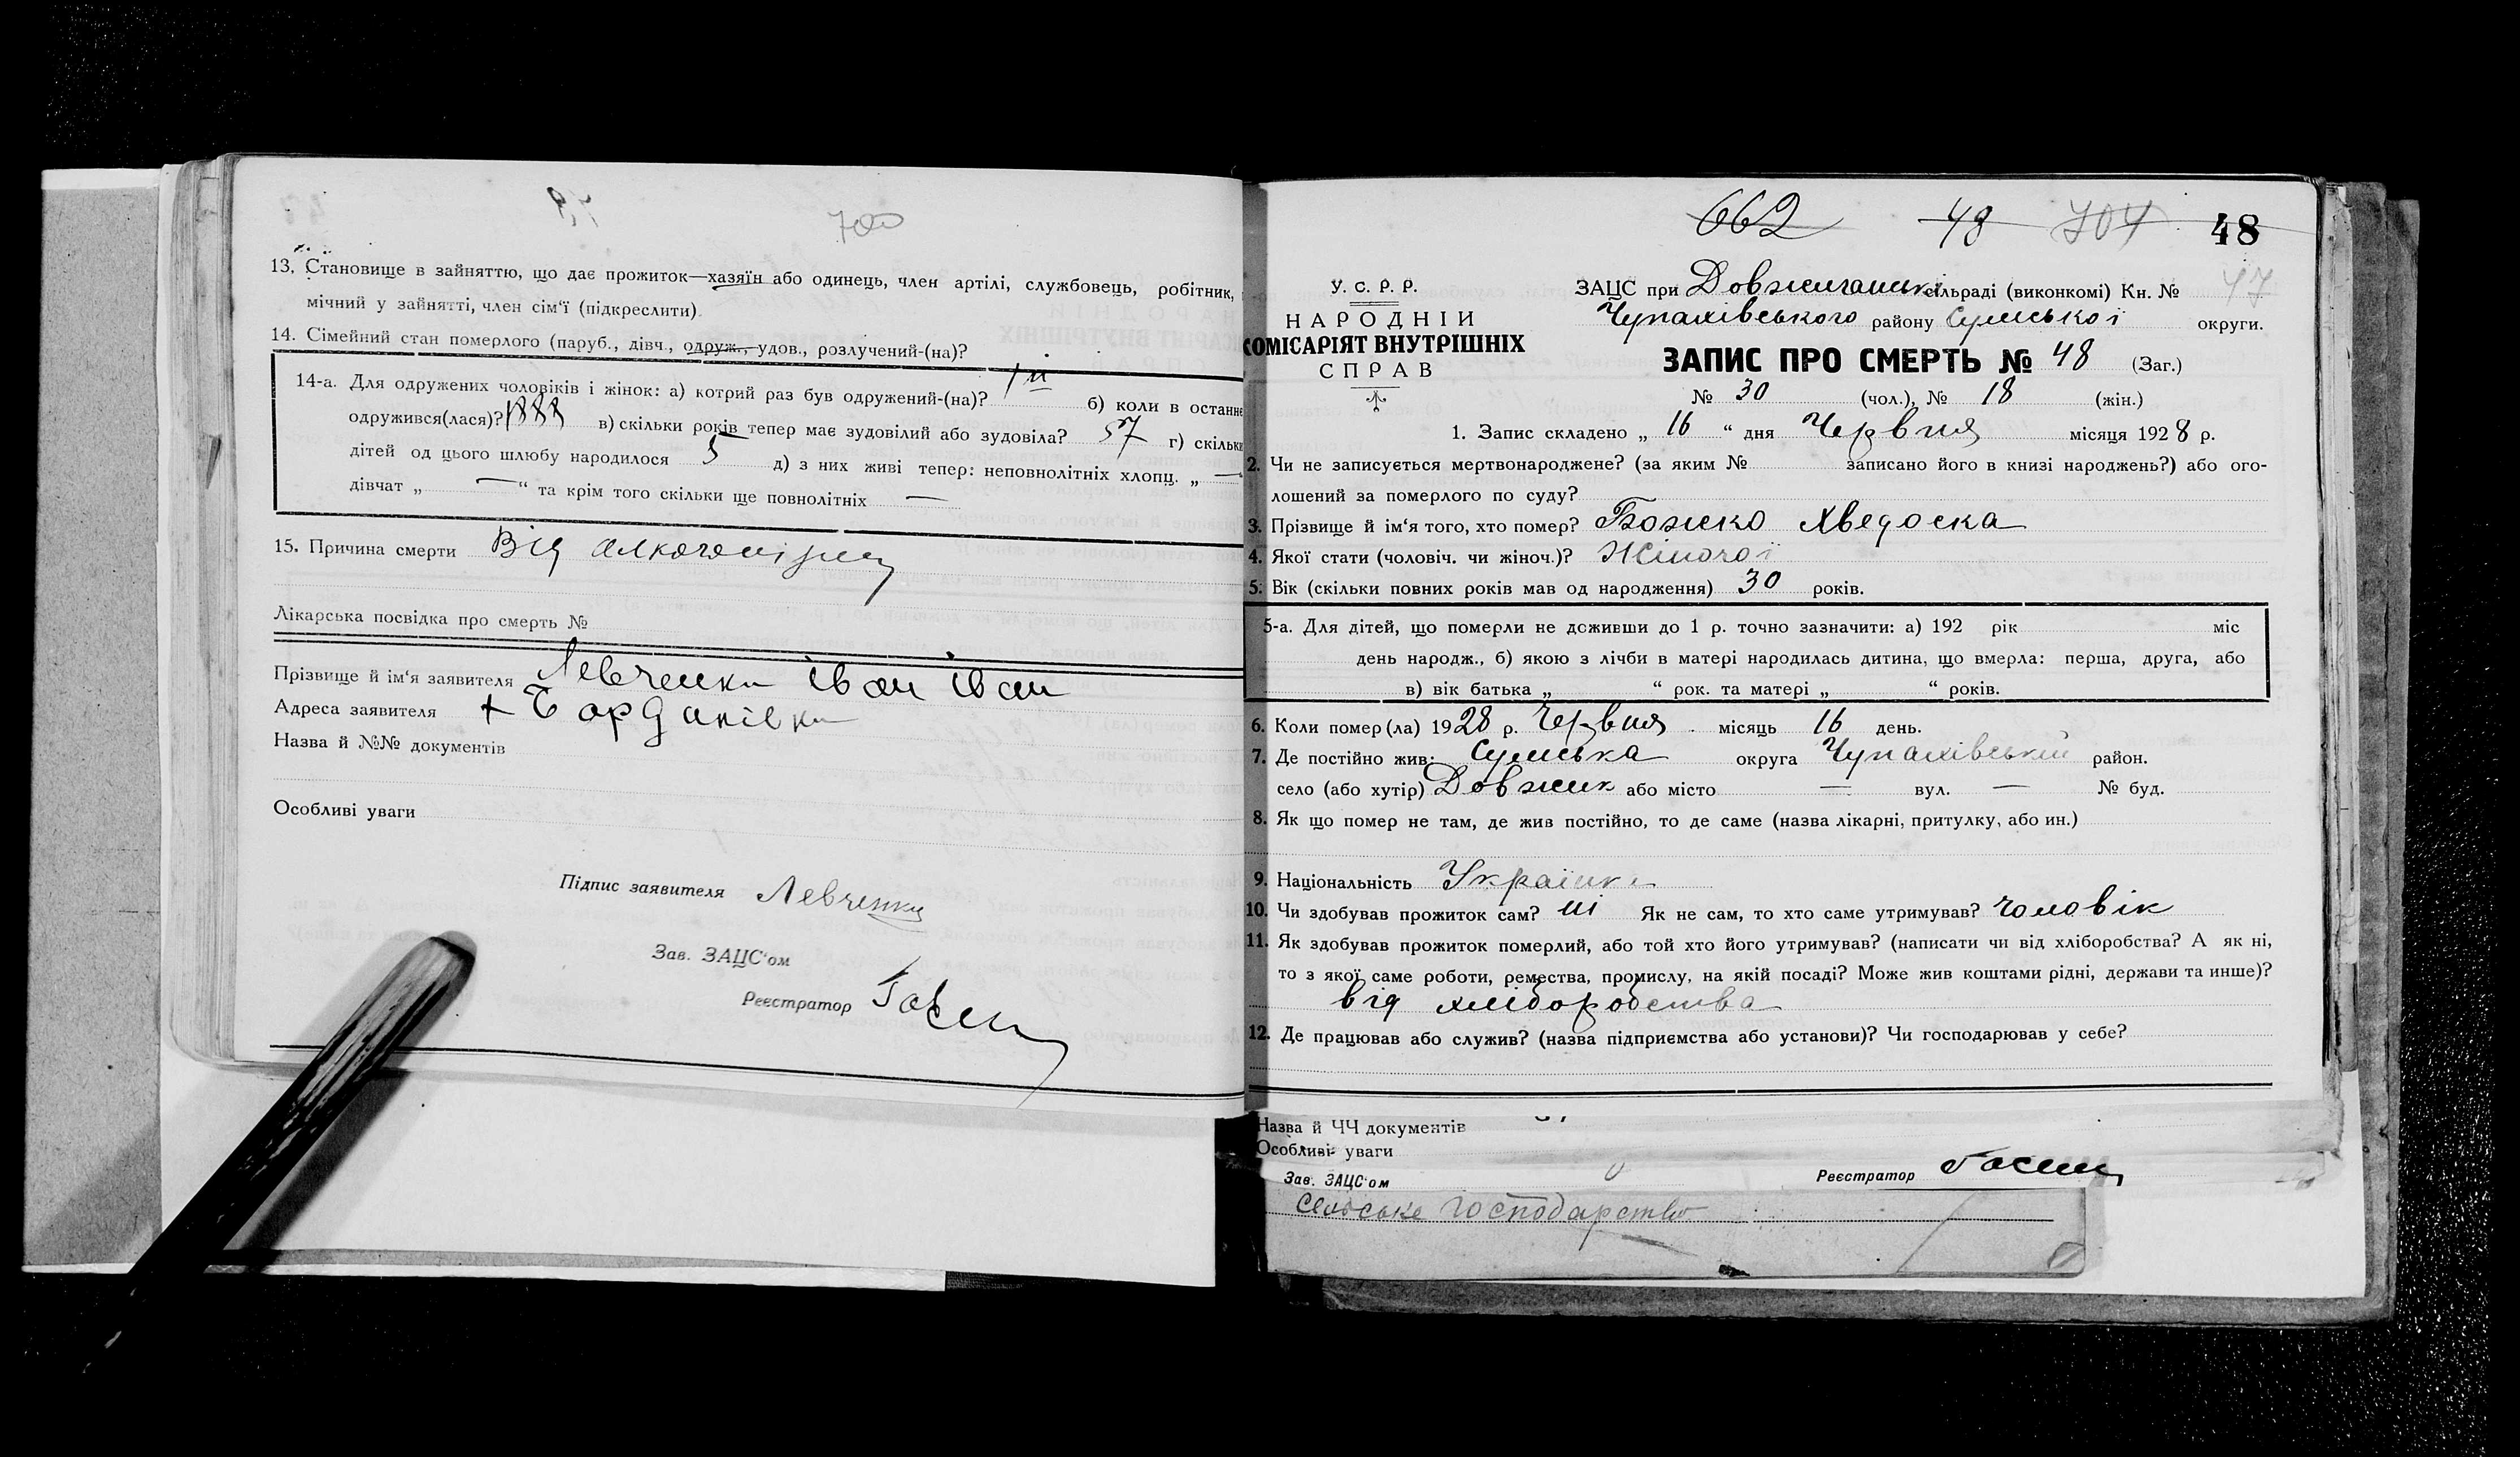 700
13. Становище в зайняттю, що дає прожиток—хазяїн або одинець, член артілі, службовець, робітник,
мічний у зайнятті, член сім'ї (підкреслити)
14. Сімейний стан померлого (паруб., дівч., одруж., удов., розлучений-(на)?
14-а. Для одружених чоловіків і жінок: а) котрий раз був одружений-(на)? 1й б) коли в останнє
одружився(лася)? 1888 в) скільки років тепер має зудовілий або зудовіла? 57 г) скільки
дітей од цього шлюбу народилося 5 д) з них живі тепер: неповнолітніх хлопц. „ —
дівчат „ — “ та крім того скільки ще повнолітніх —
15. Причина смерти Від алкоголізму
Лікарська посвідка про смерть №
Прізвище й ім'я заявителя Левченко Іван Іван
Адреса заявителя х Борданівка
Назва й №№ документів
Особливі уваги
Підпис заявителя Левченко
Зав. ЗАЦС'ом
Реєстратор
662 48 704 48
У. С. Р. Р.
НАРОДНІЙ
КОМІСАРІЯТ ВНУТРІШНІХ
СПРАВ
ЗАЦС при Довжицький сільраді (виконкомі) Кн. № 47
Чупахівського району Сумської округи.
ЗАПИС ПРО СМЕРТЬ № 48 (Заг.)
№ 30 (чол.), № 18 (жін.)
1. Запис складено „ 16 “ дня Червня місяця 1928 р.
2. Чи не записується мертвонароджене? (за яким № записано його в книзі народжень?) або ого-
лошений за померлого по суду?
3. Прізвище й ім'я того, хто помер? Божко Хведоска
4. Якої стати (чоловіч. чи жіноч.)? Жіночої
5. Вік (скільки повних років мав од народження) 30 років.
5-а. Для дітей, що померли не доживши до 1 р. точно зазначити: а) 192 рік міс
день народж., б) якою з лічби в матері народилась дитина, що вмерла: перша, друга, або
в) вік батька „ “ рок. та матері „ “ років.
6. Коли помер(ла) 1928 р. Червня місяць 16 день.
7. Де постійно жив: Сумська округа Чупахівський район.
село (або хутір) Довжик або місто — вул. — № буд.
8. Як що помер не там, де жив постійно, то де саме (назва лікарні, притулку, або ин.)
9. Національність Українка
10. Чи здобував прожиток сам? ні Як не сам, то хто саме утримував? чоловік
11. Як здобував прожиток померлий, або той хто його утримував? (написати чи від хліборобства? А як ні,
то з якої саме роботи, ремества, промислу, на якій посаді? Може жив коштами рідні, держави та инше)?
від хліборобства
12. Де працював або служив? (назва підприємства або установи)? Чи господарював у себе?
Назва й ЧЧ документів
Особливі уваги
Зав. ЗАЦС'ом Реєстратор
Сельське господарство